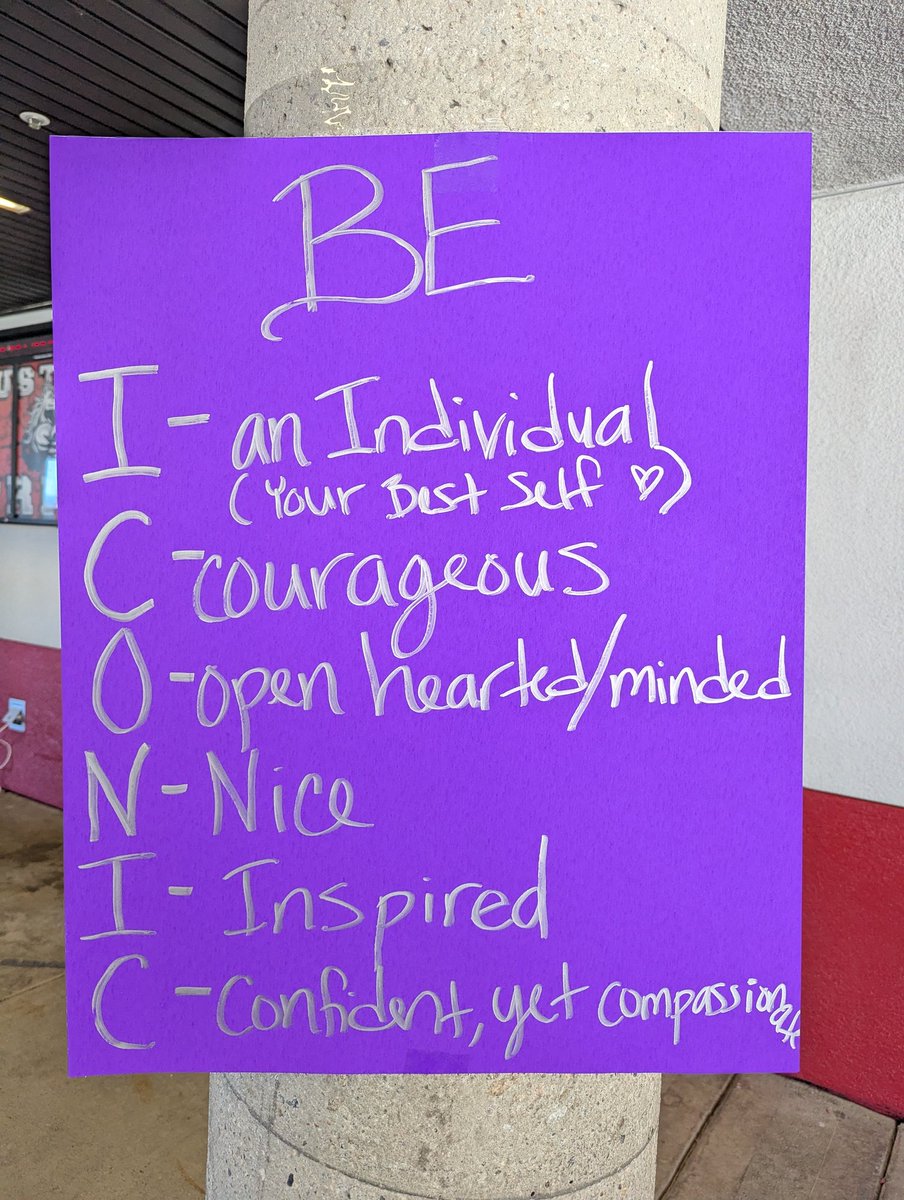 BE
I - an Individual
(Your Best Self ♡)
C - courageous
O - open hearted/minded
N - Nice
I - Inspired
C - Confident, yet compassionate
UST